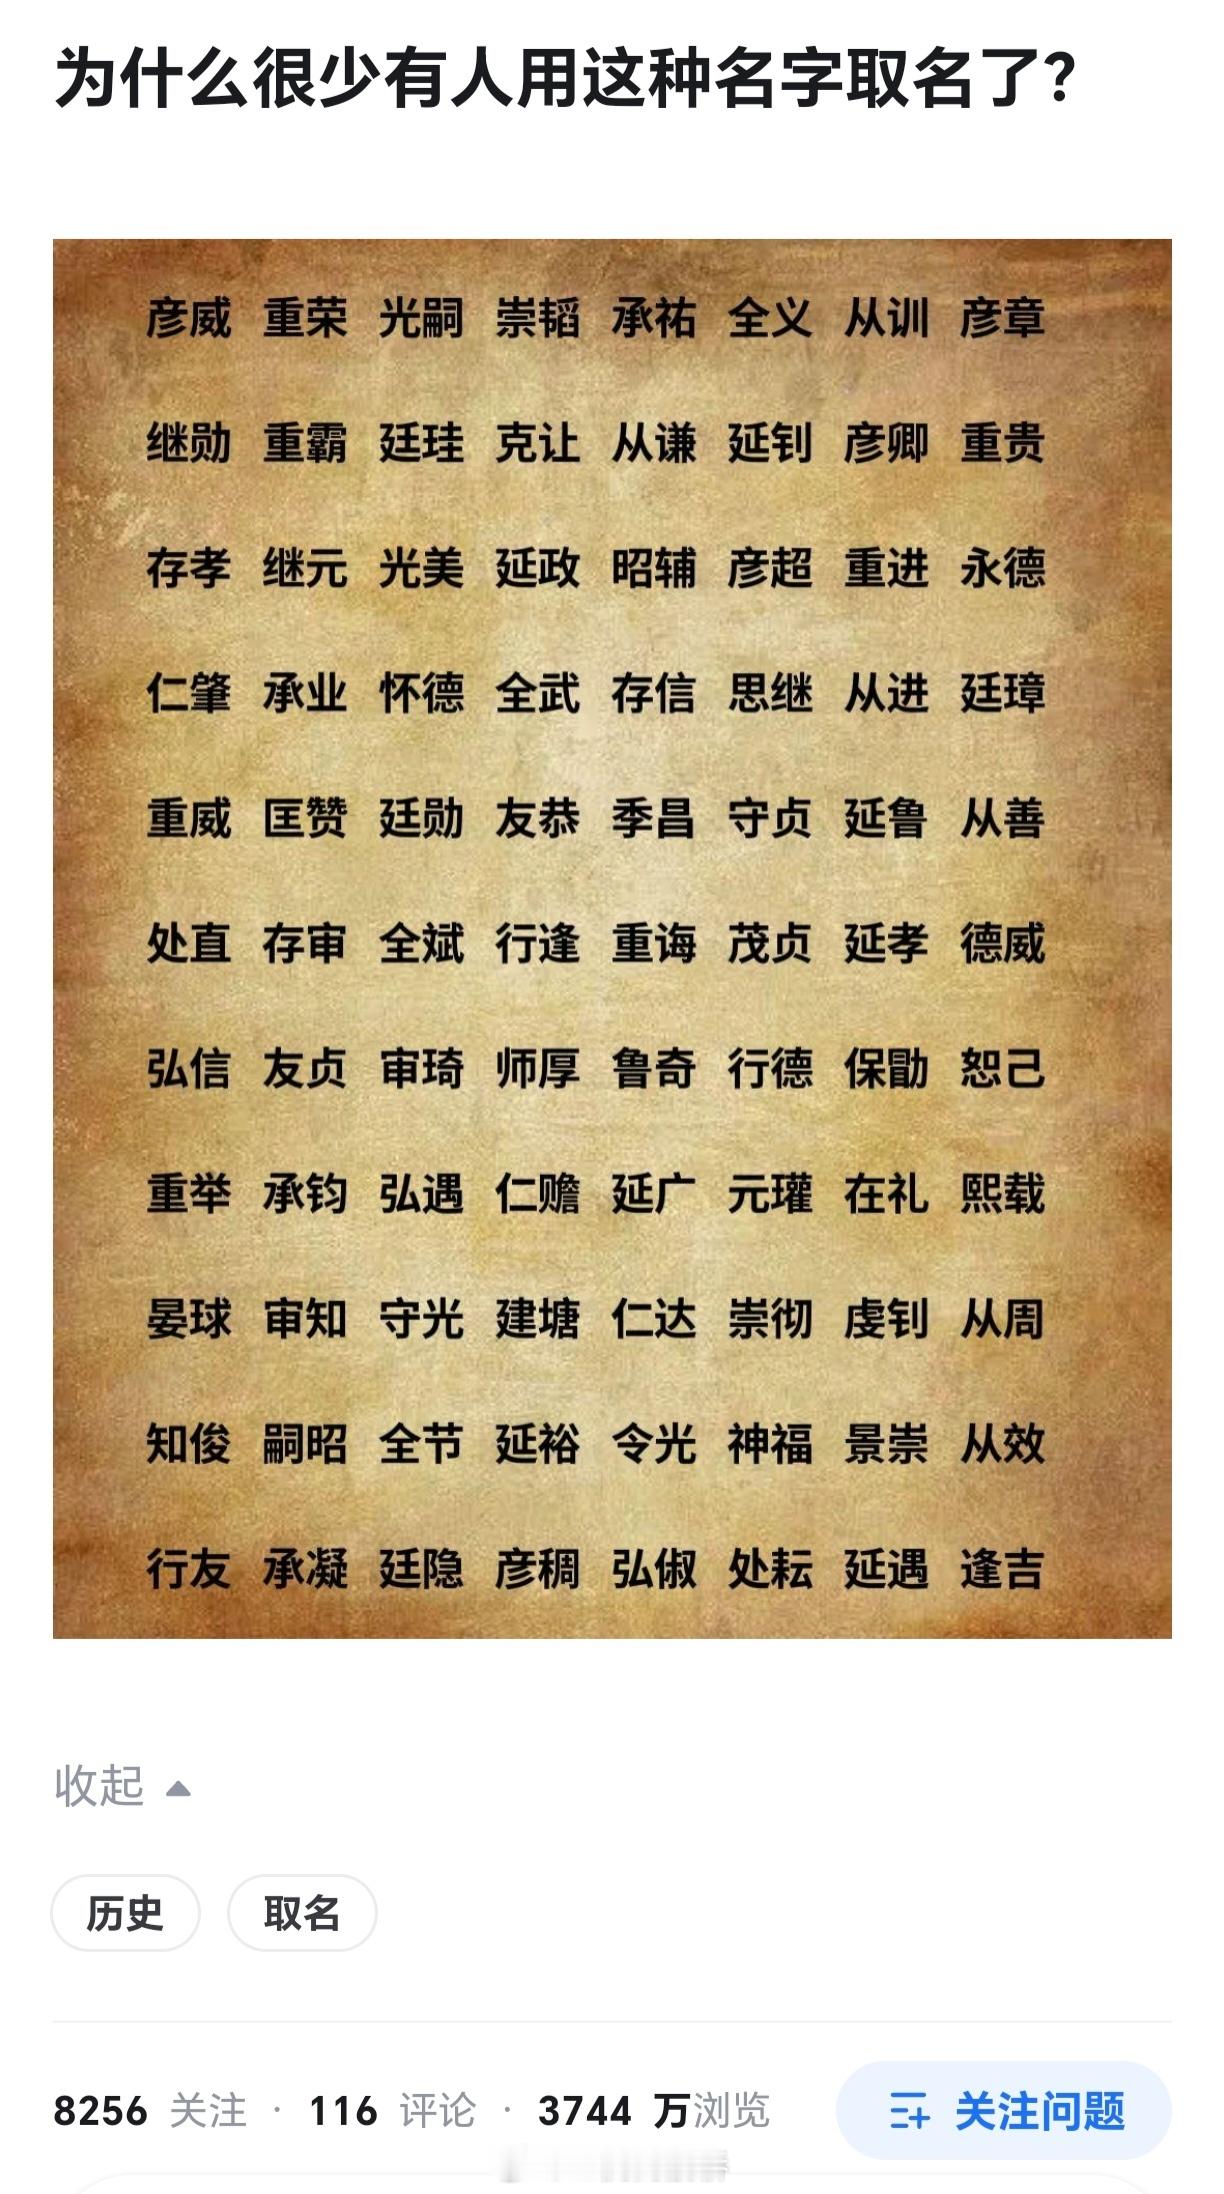 为什么很少有人用这种名字取名了？
彦威 重荣 光嗣 崇韬 承祐 全义 从训 彦章
继勋 重霸 廷珪 克让 从谦 延钊 彦卿 重贵
存孝 继元 光美 延政 昭辅 彦超 重进 永德
仁肇 承业 怀德 全武 存信 思继 从进 廷璋
重威 匡赞 廷勋 友恭 季昌 守贞 延鲁 从善
处直 存审 全斌 行逢 重诲 茂贞 延孝 德威
弘信 友贞 审琦 师厚 鲁奇 行德 保勖 恕己
重举 承钧 弘遇 仁赡 延广 元瓘 在礼 熙载
晏球 审知 守光 建塘 仁达 崇彻 虔钊 从周
知俊 嗣昭 全节 延裕 令光 神福 景崇 从效
行友 承凝 廷隐 彦稠 弘俶 处耘 延遇 逢吉
收起
历史 取名
8256 关注 · 116 评论 · 3744 万浏览 关注问题